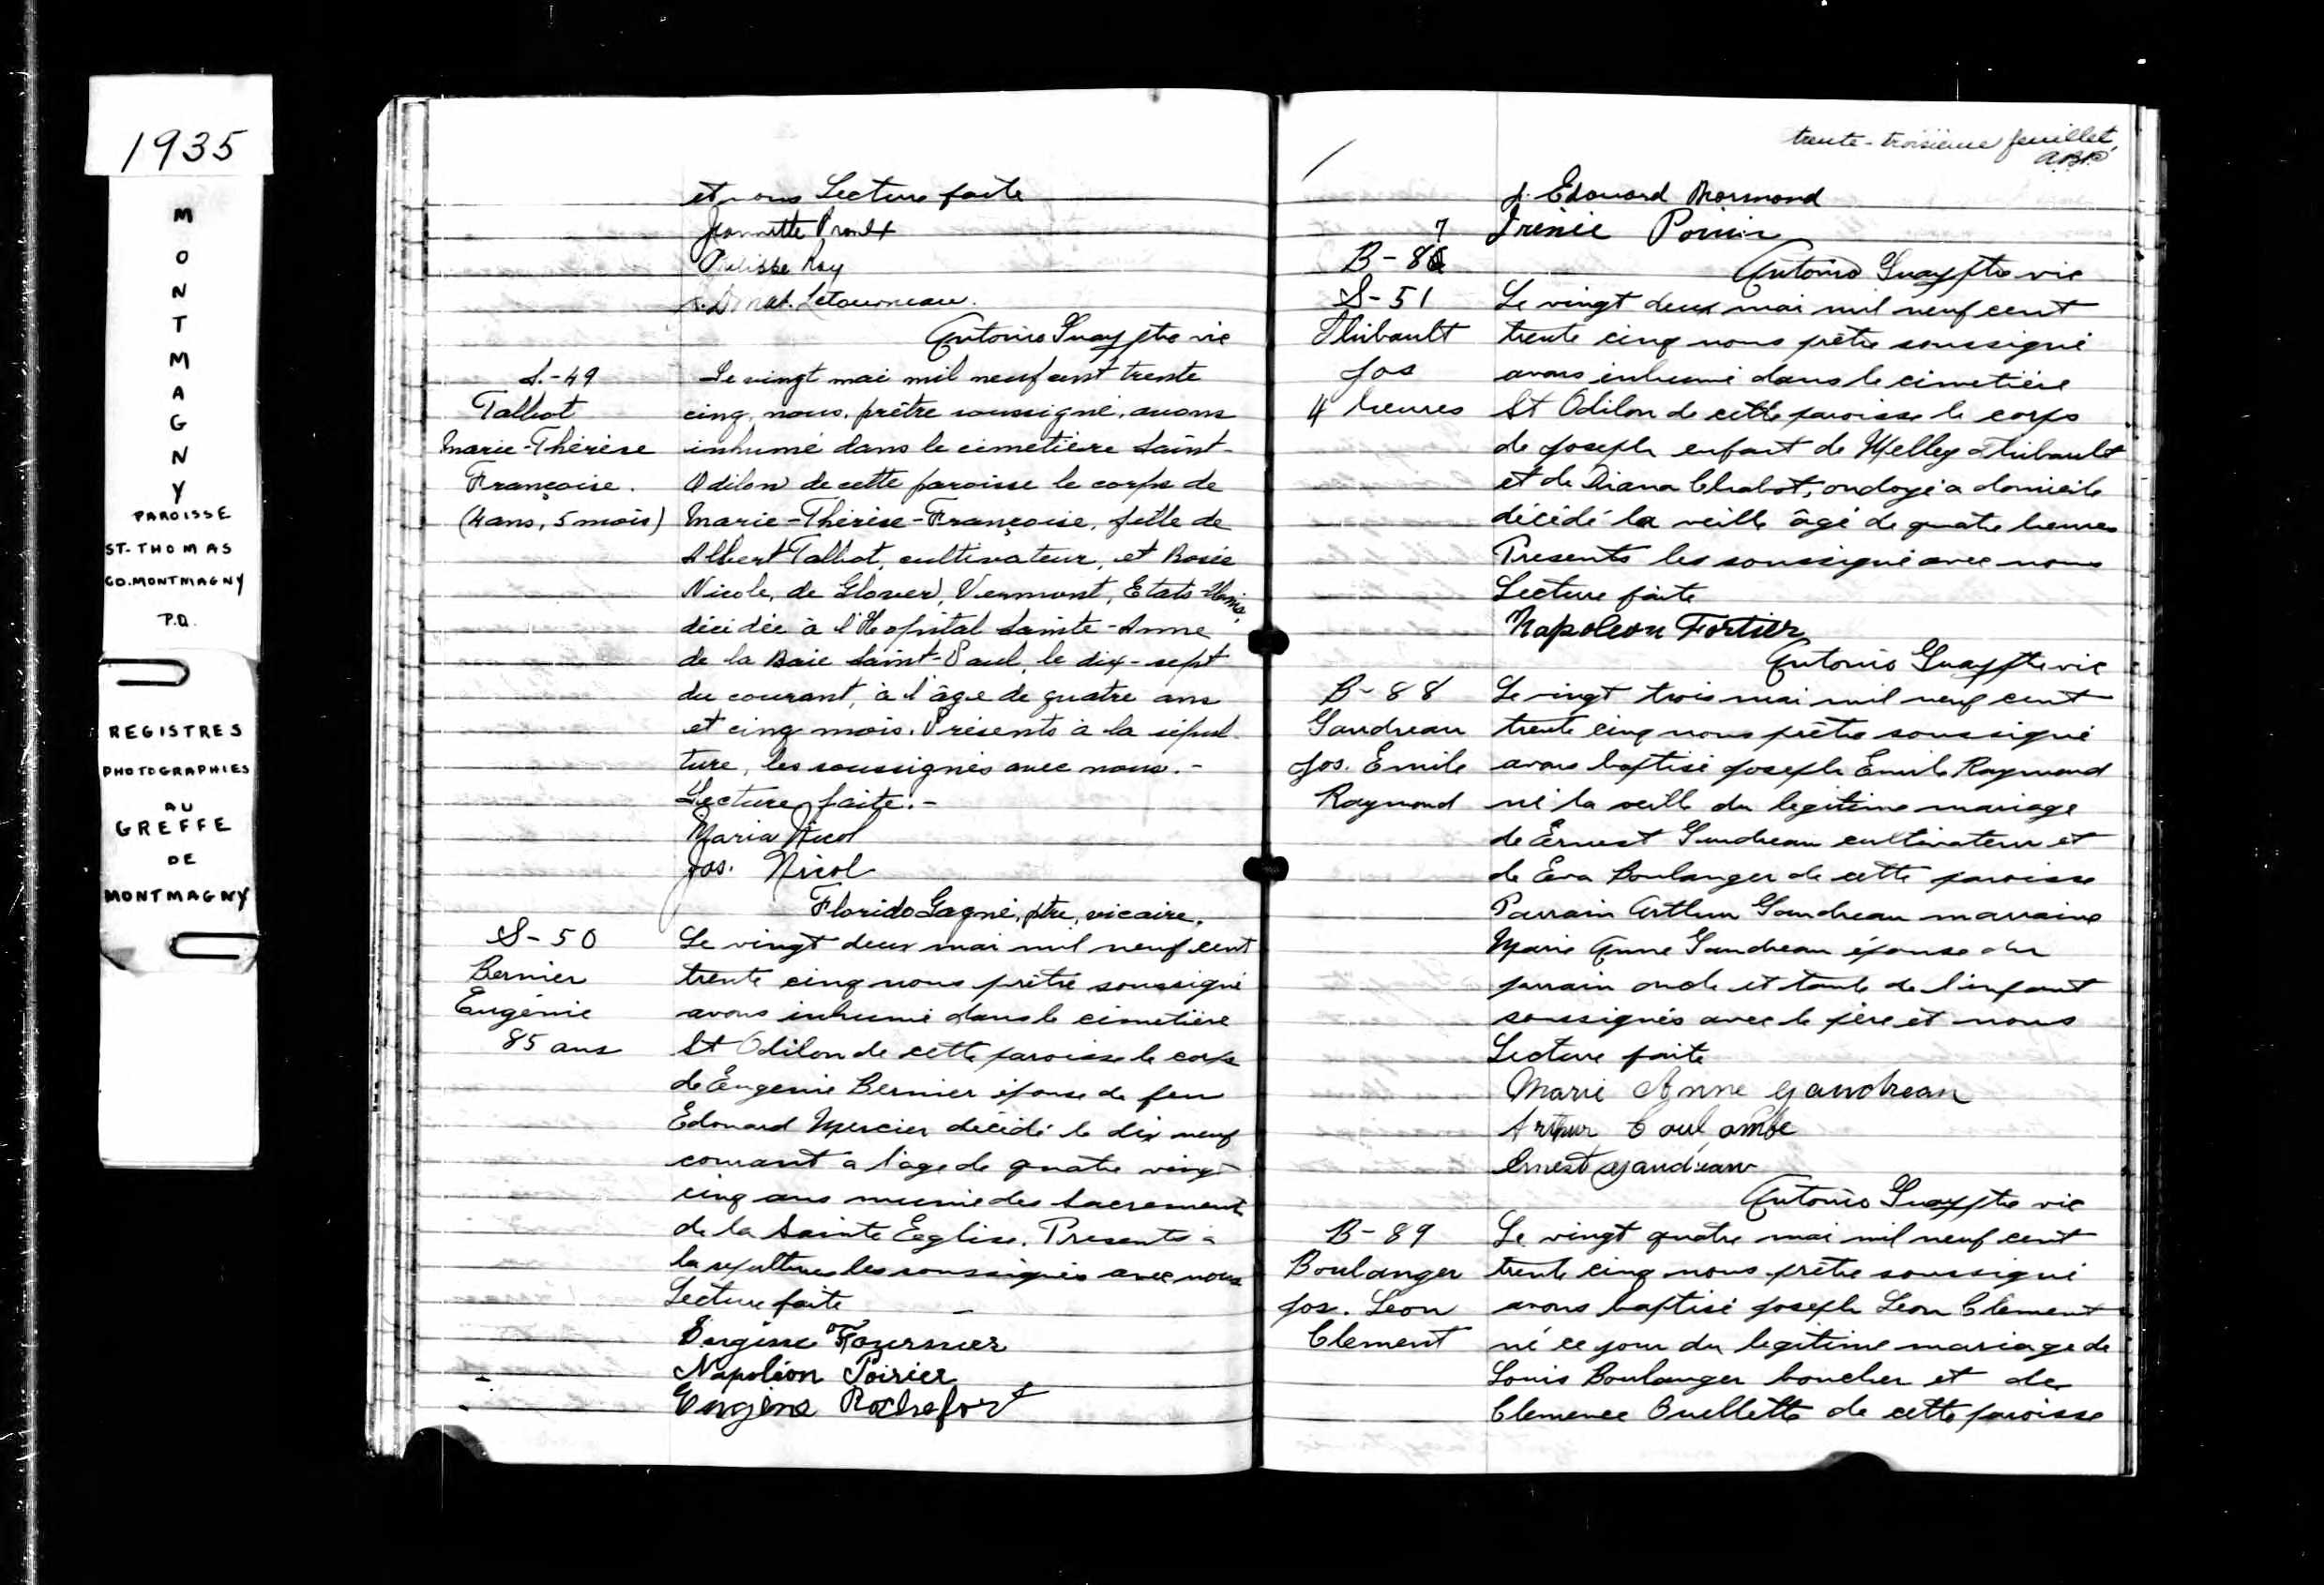 1935
M
O
N
T
M
A
G
N
Y
PAROISSE
ST-THOMAS
CO.MONTMAGNY
P.Q.
REGISTRES
PHOTOGRAPHIES
AU
GREFFE
DE
MONTMAGNY
et nous Lecture faite
Jeannette Proulx
Roy
Letourneau.
Antonio Guay ptre vic
S.-49
Talbot
Marie-Thérèse
Françoise.
(4 ans, 5 mois)
Le vingt mai mil neuf cent trente
cinq, nous, prêtre soussigné, avons
inhumé dans le cimetière Saint-
Odilon de cette paroisse le corps de
Marie-Thérèse-Françoise, fille de
Albert Talbot, cultivateur, et Rosée
Nicole, de Glover, Vermont, Etats-Unis,
décédée à l'Hopital Sainte-Anne
de la Baie Saint-Paul, le dix-sept
du courant, à l'âge de quatre ans
et cinq mois. Présents à la sépul-
ture, les soussignés avec nous.-
Lecture faite.-
Maria Nicol
Jos. Nicol
Florido Gagné, ptre, vicaire.
S-50
Bernier
Eugénie
85 ans
Le vingt deux mai mil neuf cent
trente cinq nous prêtre soussigné
avons inhumé dans le cimetière
St Odilon de cette paroisse le corps
de Eugenie Bernier épouse de feu
Edouard Mercier décédé le dix neuf
courant a l'age de quatre vingt
cinq ans munie des Sacrements
de la Sainte Eglise. Presents a
la sepulture les soussignés avec nous
Lecture faite
Eugène Fournier
Napoléon Poirier
Eugène Rochefort
trente-troisième feuillet,
A.B.P.
J. Edouard Normand
Irénée Poirier
7
B-8
Antonio Guay ptre vic
S-51
Thibault
Jos
4 heures
Le vingt deux mai mil neuf cent
trente cinq nous prêtre soussigné
avons inhumé dans le cimetière
St Odilon de cette paroisse le corps
de Joseph enfant de Welley Thibault
et de Diana Chabot, ondoyé a domicile
décédé la veille âgé de quatre heures
Presents les soussigné avec nous
Lecture faite
Napoleon Fortier
Antonio Guay ptre vic
B-88
Gaudreau
Jos. Emile
Raymond
Le vingt trois mai mil neuf cent
trente cinq nous prêtre soussigné
avons baptisé Joseph Emile Raymond
né la veille du legitime mariage
de Ernest Gaudreau cultivateur et
de Eva Boulanger de cette paroisse
Parrain Arthur Gaudreau marraine
Marie Anne Gaudreau épouse du
parrain oncle et tante de l'enfant
soussignés avec le père et nous
Lecture faite
Marie Anne Gaudreau
Arthur Coulombe
Ernest Gaudreau
Antonio Guay ptre vic
B-89
Boulanger
Jos. Leon
Clement
Le vingt quatre mai mil neuf cent
trente cinq nous prêtre soussigné
avons baptisé Joseph Leon Clement
né ce jour du legitime mariage de
Louis Boulanger boucher et de
Clemence Ouellette de cette paroisse